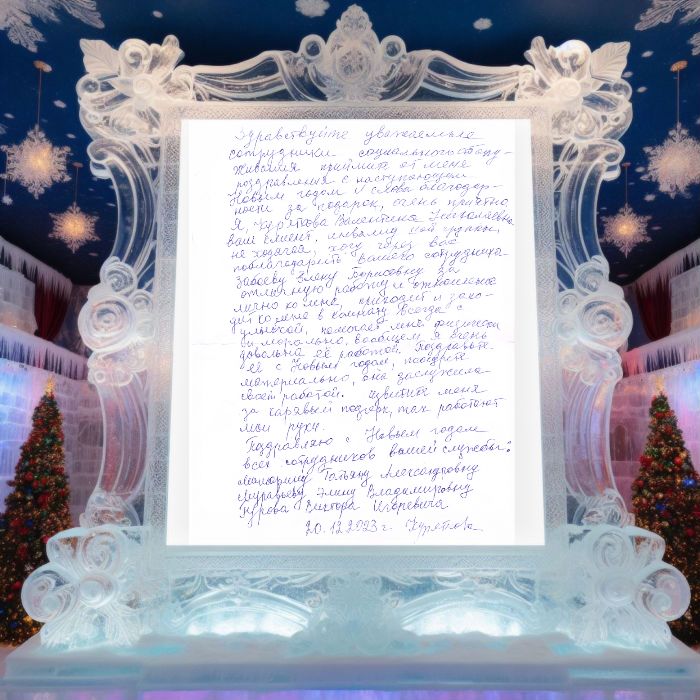 Здравствуйте уважаемые
сотрудники социального обслу-
живания примите от меня
поздравления с наступающем
Новым годом и слова благодар-
ности за подарок, очень приятно
Я, Курятова Валентина Николаевна
ваш клиент, инвалид ной группы,
не ходячая, хочу через вас
поблагодарить вашего сотрудника-
Забоеву Элену Борисовну за
отличную работу и отношение
лично ко мне, приходит и захо-
дит ко мне в комнату всегда с
улыбкой, помогает мне физически
и морально, вообщем я очень
довольна её работой. Поздравьте
её с Новым годом, поощрите
материально, она заслужила
своей работой. извините меня
за карявый подчерк, так работают
мои руки.
Поздравляю с Новым годом
всех сотрудников вашей службы:
Татьяну Александровну
Муравьёву Элину Владимировну
Виктора Игоревича
20.12.2023 г. Курятова